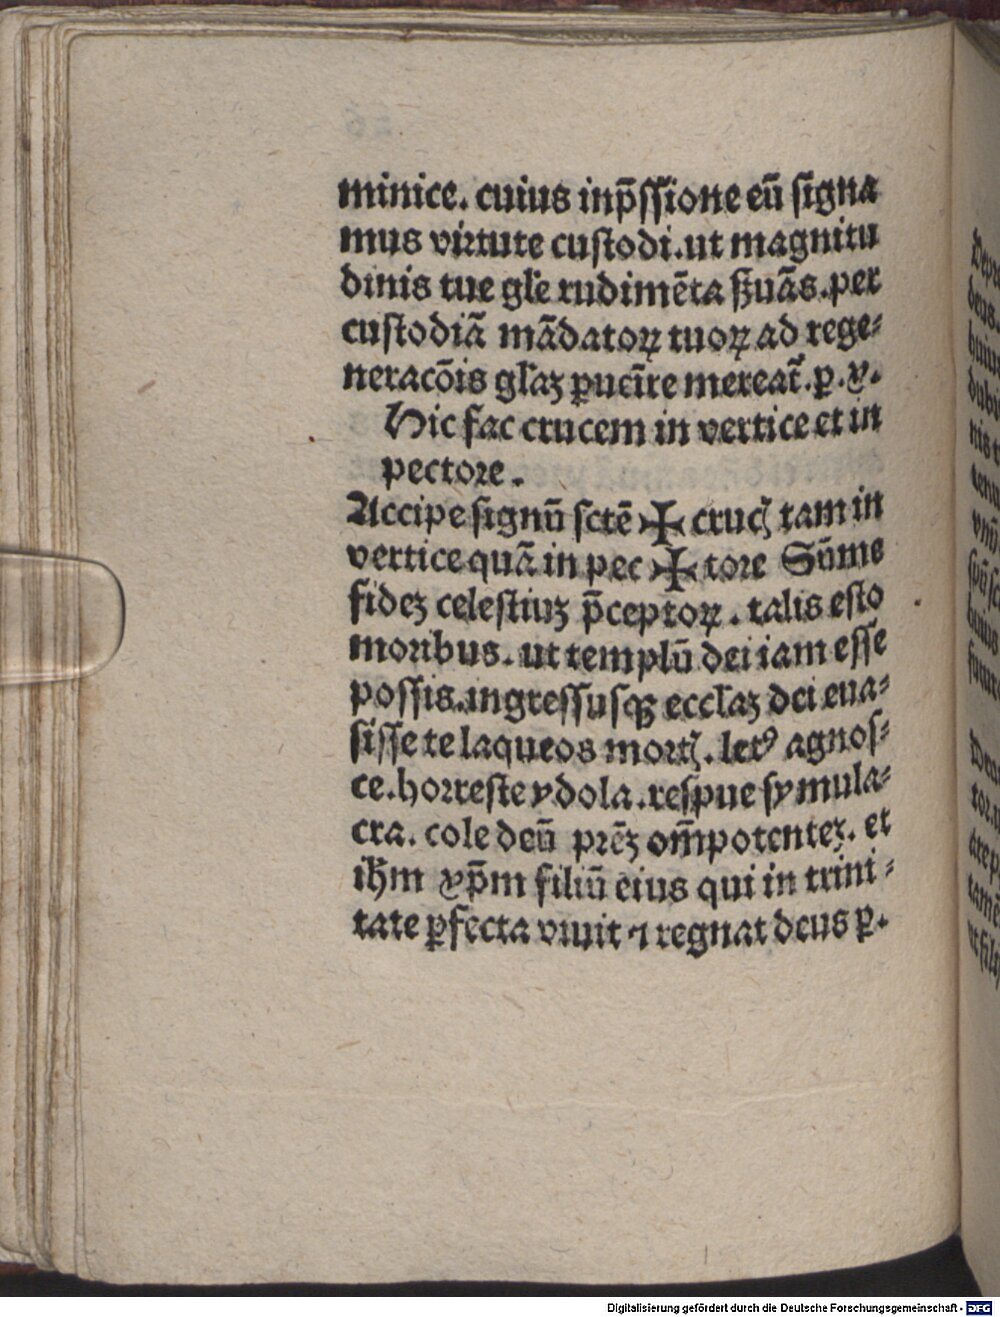 minice. cuius inp̄ſſione eū ſigna
mus virtute cuſtodi.ut magnitu
dinis tue gl̄e rudimēta ẜuās.per
cuſtodiā mādatoꝝ tuoꝝ ad rege⸗
neracōis gl̄aꝫ ꝑueīre mereat̄.ꝑ.x.
Hic fac crucem in vertice et in
pectore.
Accipe ſignū ſctē ✠ crucꝭ tam in
vertice quā in pec ✠ tore Sūme
fideꝫ celeſtiuꝫ p̄ceptoꝝ. talis eſto
moribus. ut templū dei iam eſſe
poſſis.ingreſſuſqꝫ eccl̄aꝫ dei eua⸗
ſiſſe te laqueos mortꝭ. letꝰ agnoſ⸗
ce.horreſte ydola.reſpue ſymula⸗
cra. cole deū prēꝫ om̄potenteꝫ. et
ih̄m xp̄m filiū eius qui in trini⸗
tate ꝑfecta viuit ⁊ regnat deus ꝑ.
Digitalisierung gefördert durch die Deutsche Forschungsgemeinschaft - DFG